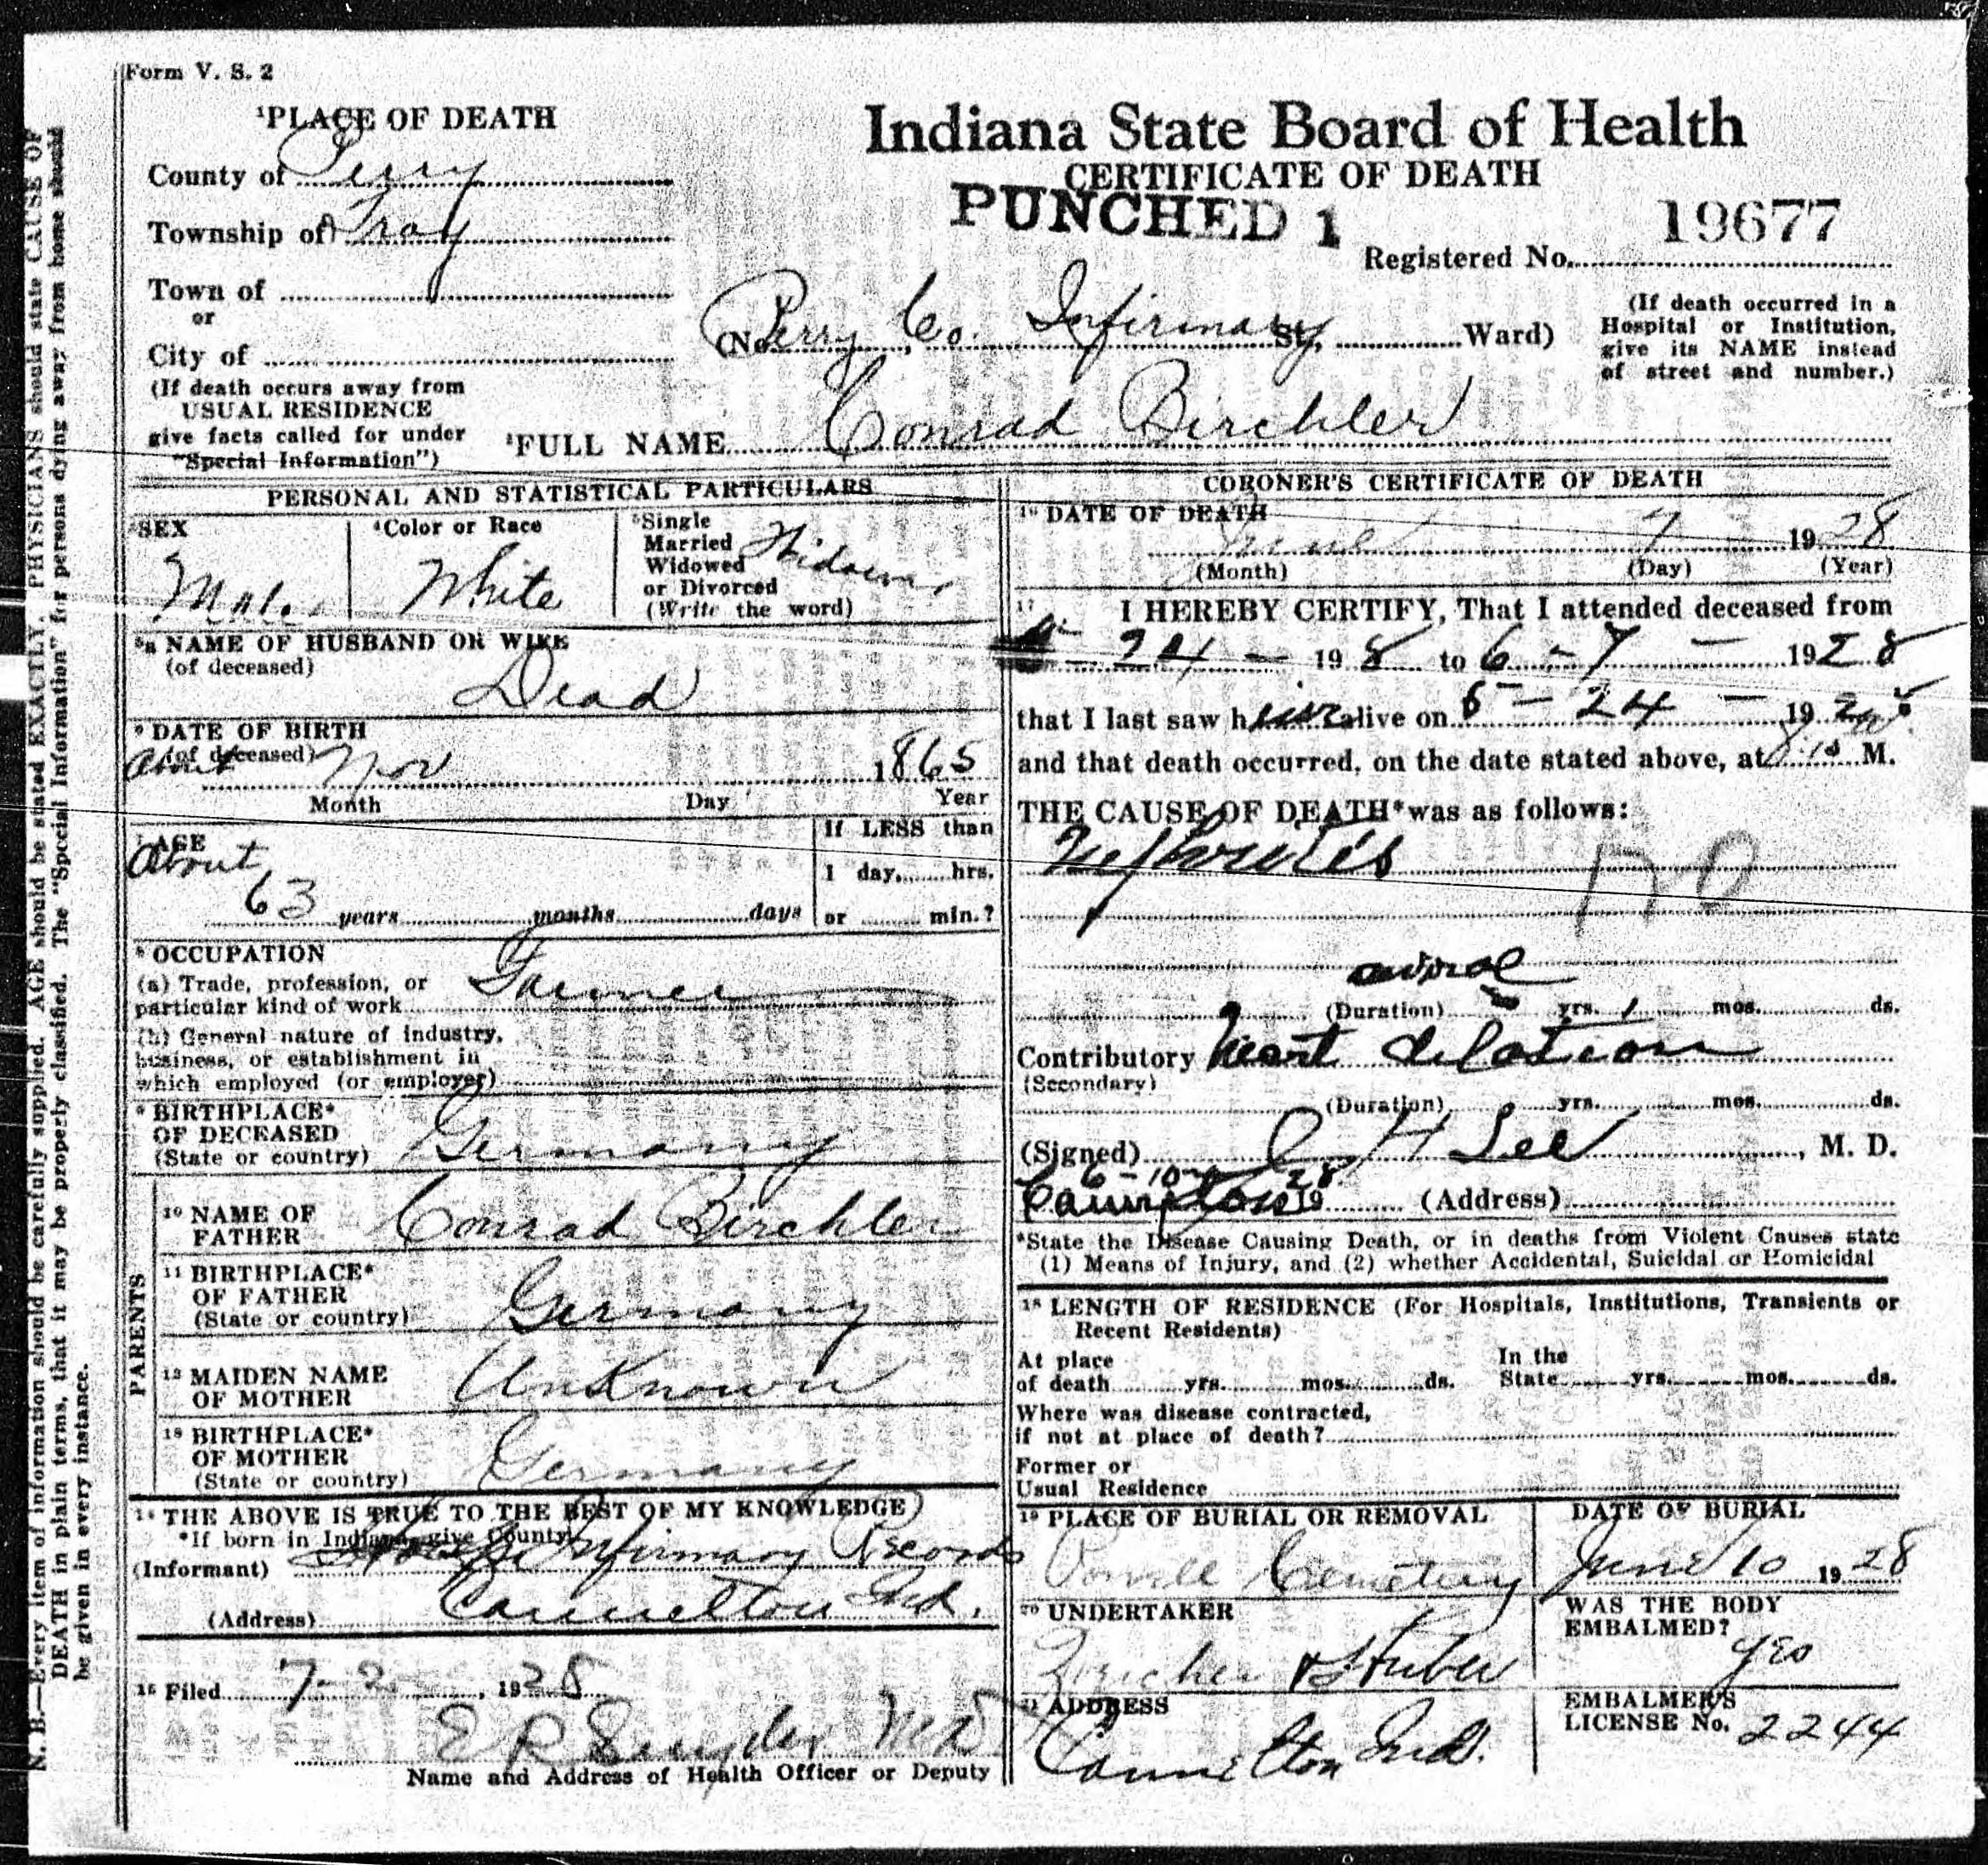 Form V. S. 2
¹PLACE OF DEATH
County of Perry
Township of Troy
Town of
or
City of
(If death occurs away from
USUAL RESIDENCE
give facts called for under
"Special Information")
Indiana State Board of Health
CERTIFICATE OF DEATH
PUNCHED 1
19677
Registered No.
(No. Perry Co. Infirmary St., Ward)
(If death occurred in a
Hospital or Institution,
give its NAME instead
of street and number.)
²FULL NAME Conrad Birchler
PERSONAL AND STATISTICAL PARTICULARS
³SEX
Male
⁴Color or Race
White
⁵Single
Married
Widowed
or Divorced
(Write the word)
Widower
⁵a NAME OF HUSBAND OR WIFE
(of deceased)
Dead
⁶ DATE OF BIRTH
(of deceased)
About Nov 1865
Month Day Year
⁷AGE
About
63 years months days
If LESS than
1 day, hrs.
or min.?
⁸ OCCUPATION
(a) Trade, profession, or
particular kind of work Farmer
(b) General nature of industry,
business, or establishment in
which employed (or employer)
⁹ BIRTHPLACE*
OF DECEASED
(State or country) Germany
PARENTS
¹⁰ NAME OF
FATHER Conrad Birchler
¹¹ BIRTHPLACE*
OF FATHER
(State or country) Germany
¹² MAIDEN NAME
OF MOTHER Unknown
¹³ BIRTHPLACE*
OF MOTHER
(State or country) Germany
¹⁴ THE ABOVE IS TRUE TO THE BEST OF MY KNOWLEDGE
*If born in Indiana give County
(Informant) Infirmary Records
(Address) Cannelton Ind.
¹⁵ Filed 7-2- , 1928
E R Snyder MD
Name and Address of Health Officer or Deputy
CORONER'S CERTIFICATE OF DEATH
¹⁶ DATE OF DEATH
June 7 1928
(Month) (Day) (Year)
¹⁷ I HEREBY CERTIFY, That I attended deceased from
- 24 - 19 8 to 6 - 7 - 1928
that I last saw him alive on 5 - 24 - 19 28
and that death occurred, on the date stated above, at 8:10 M.
THE CAUSE OF DEATH* was as follows:
Nephritis
(Duration) yrs. mos. ds.
Contributory Heart dilation
(Secondary)
(Duration) yrs. mos. ds.
(Signed) H Lee , M. D.
6 - 10 - 28
Cannelton 19 (Address)
*State the Disease Causing Death, or in deaths from Violent Causes state
(1) Means of Injury, and (2) whether Accidental, Suicidal or Homicidal
¹⁸ LENGTH OF RESIDENCE (For Hospitals, Institutions, Transients or
Recent Residents)
At place
of death yrs. mos. ds.
In the
State yrs. mos. ds.
Where was disease contracted,
if not at place of death?
Former or
Usual Residence
¹⁹ PLACE OF BURIAL OR REMOVAL
Cemetery
DATE OF BURIAL
June 10 1928
²⁰ UNDERTAKER
& Huber
WAS THE BODY
EMBALMED?
yes
²¹ ADDRESS
Cannelton Ind.
EMBALMER'S
LICENSE No. 2244
N. B.—Every item of information should be carefully supplied. AGE should be stated EXACTLY. PHYSICIANS should state CAUSE OF
DEATH in plain terms, that it may be properly classified. The "Special Information" for persons dying away from home should
be given in every instance.